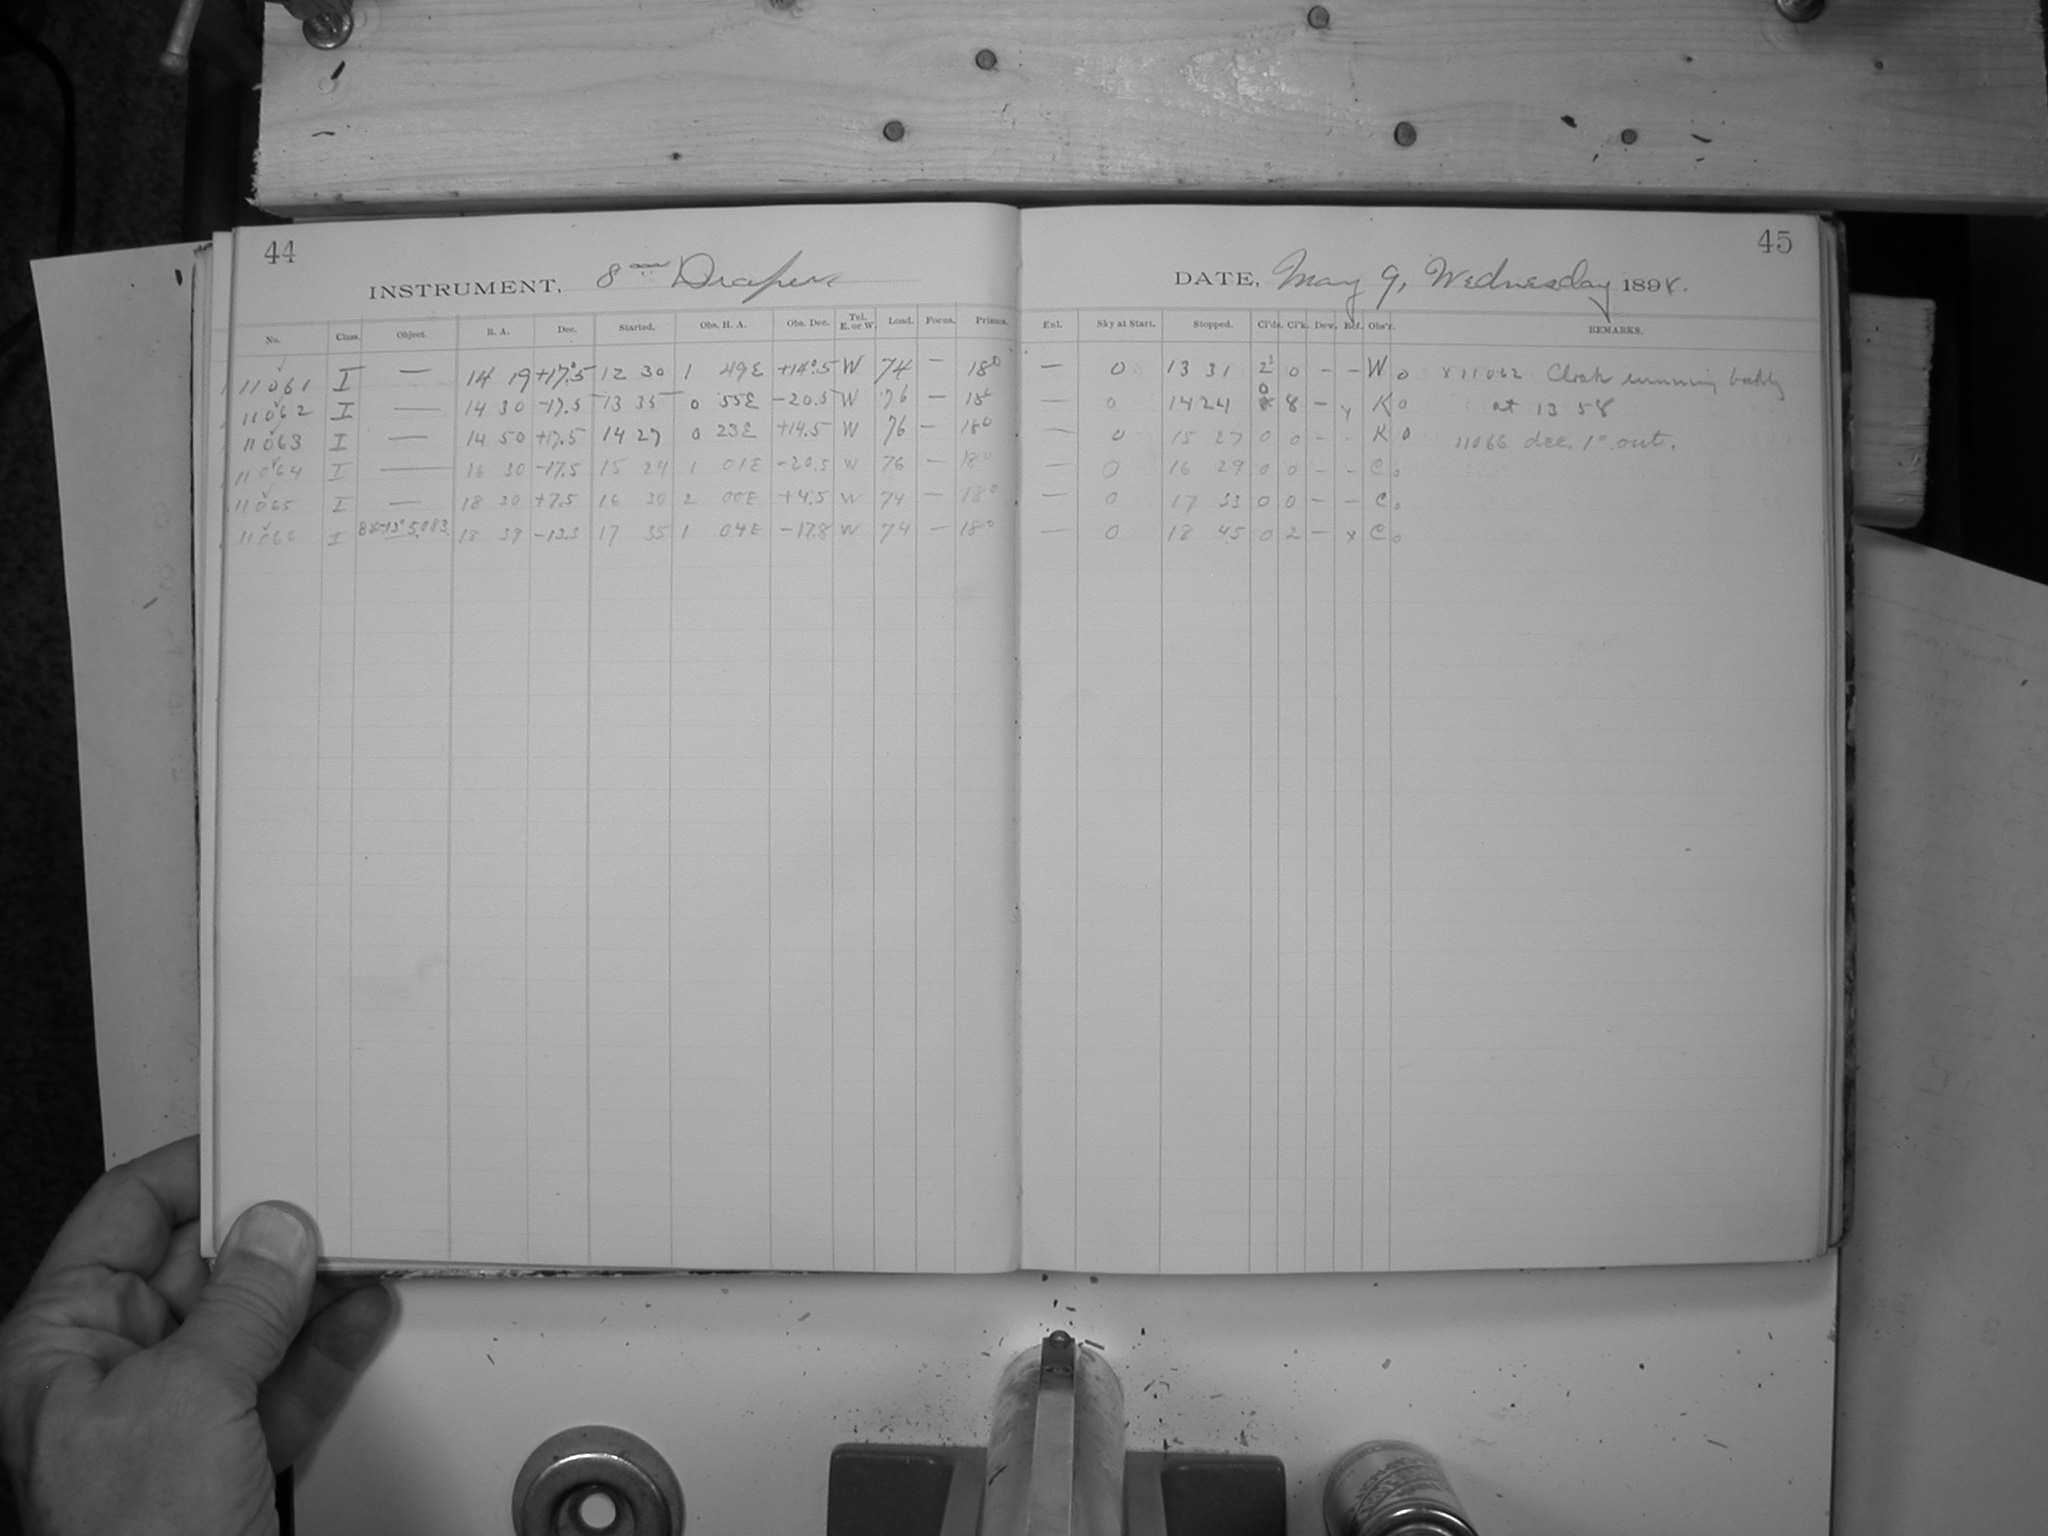 44
INSTRUMENT, 8 in Draper.
No. Class. Object. R. A. Dec. Started. Obs. H. A. Obs. Dec. Tel. E. or W. Load. Focus. Prisms.
11061 I — 14 19 +17°.5 12 30 1 49E +14°.5 W 74 — 18°
11062 I — 14 30 -17.5 13 35 0 55E -20.5 W 76 — 18°
11063 I — 14 50 +17.5 14 27 0 23E +14.5 W 76 — 18°
11064 I — 16 30 -17.5 15 29 1 01E -20.5 W 76 — 18°
11065 I — 18 30 +7.5 16 30 2 00E +4.5 W 74 — 18°
11066 I -13° 5083 18 39 -13.3 17 35 1 04E -17.8 W 74 — 18°
45
DATE, May 9, Wednesday 1894.
Enl. Sky at Start. Stopped. Cl'ds. Cl'k. Dew. Ref. Obs'r. REMARKS.
— 0 13 31 2² 0 - - W o x 11062 Clock running badly
— 0 14 24 0 8 - K o at 13 58
— 0 15 27 0 0 - - K o 11066 dec. 1° out.
— 0 16 29 0 0 - - C o
— 0 17 33 0 0 - - C o
— 0 18 45 0 2 - x C o